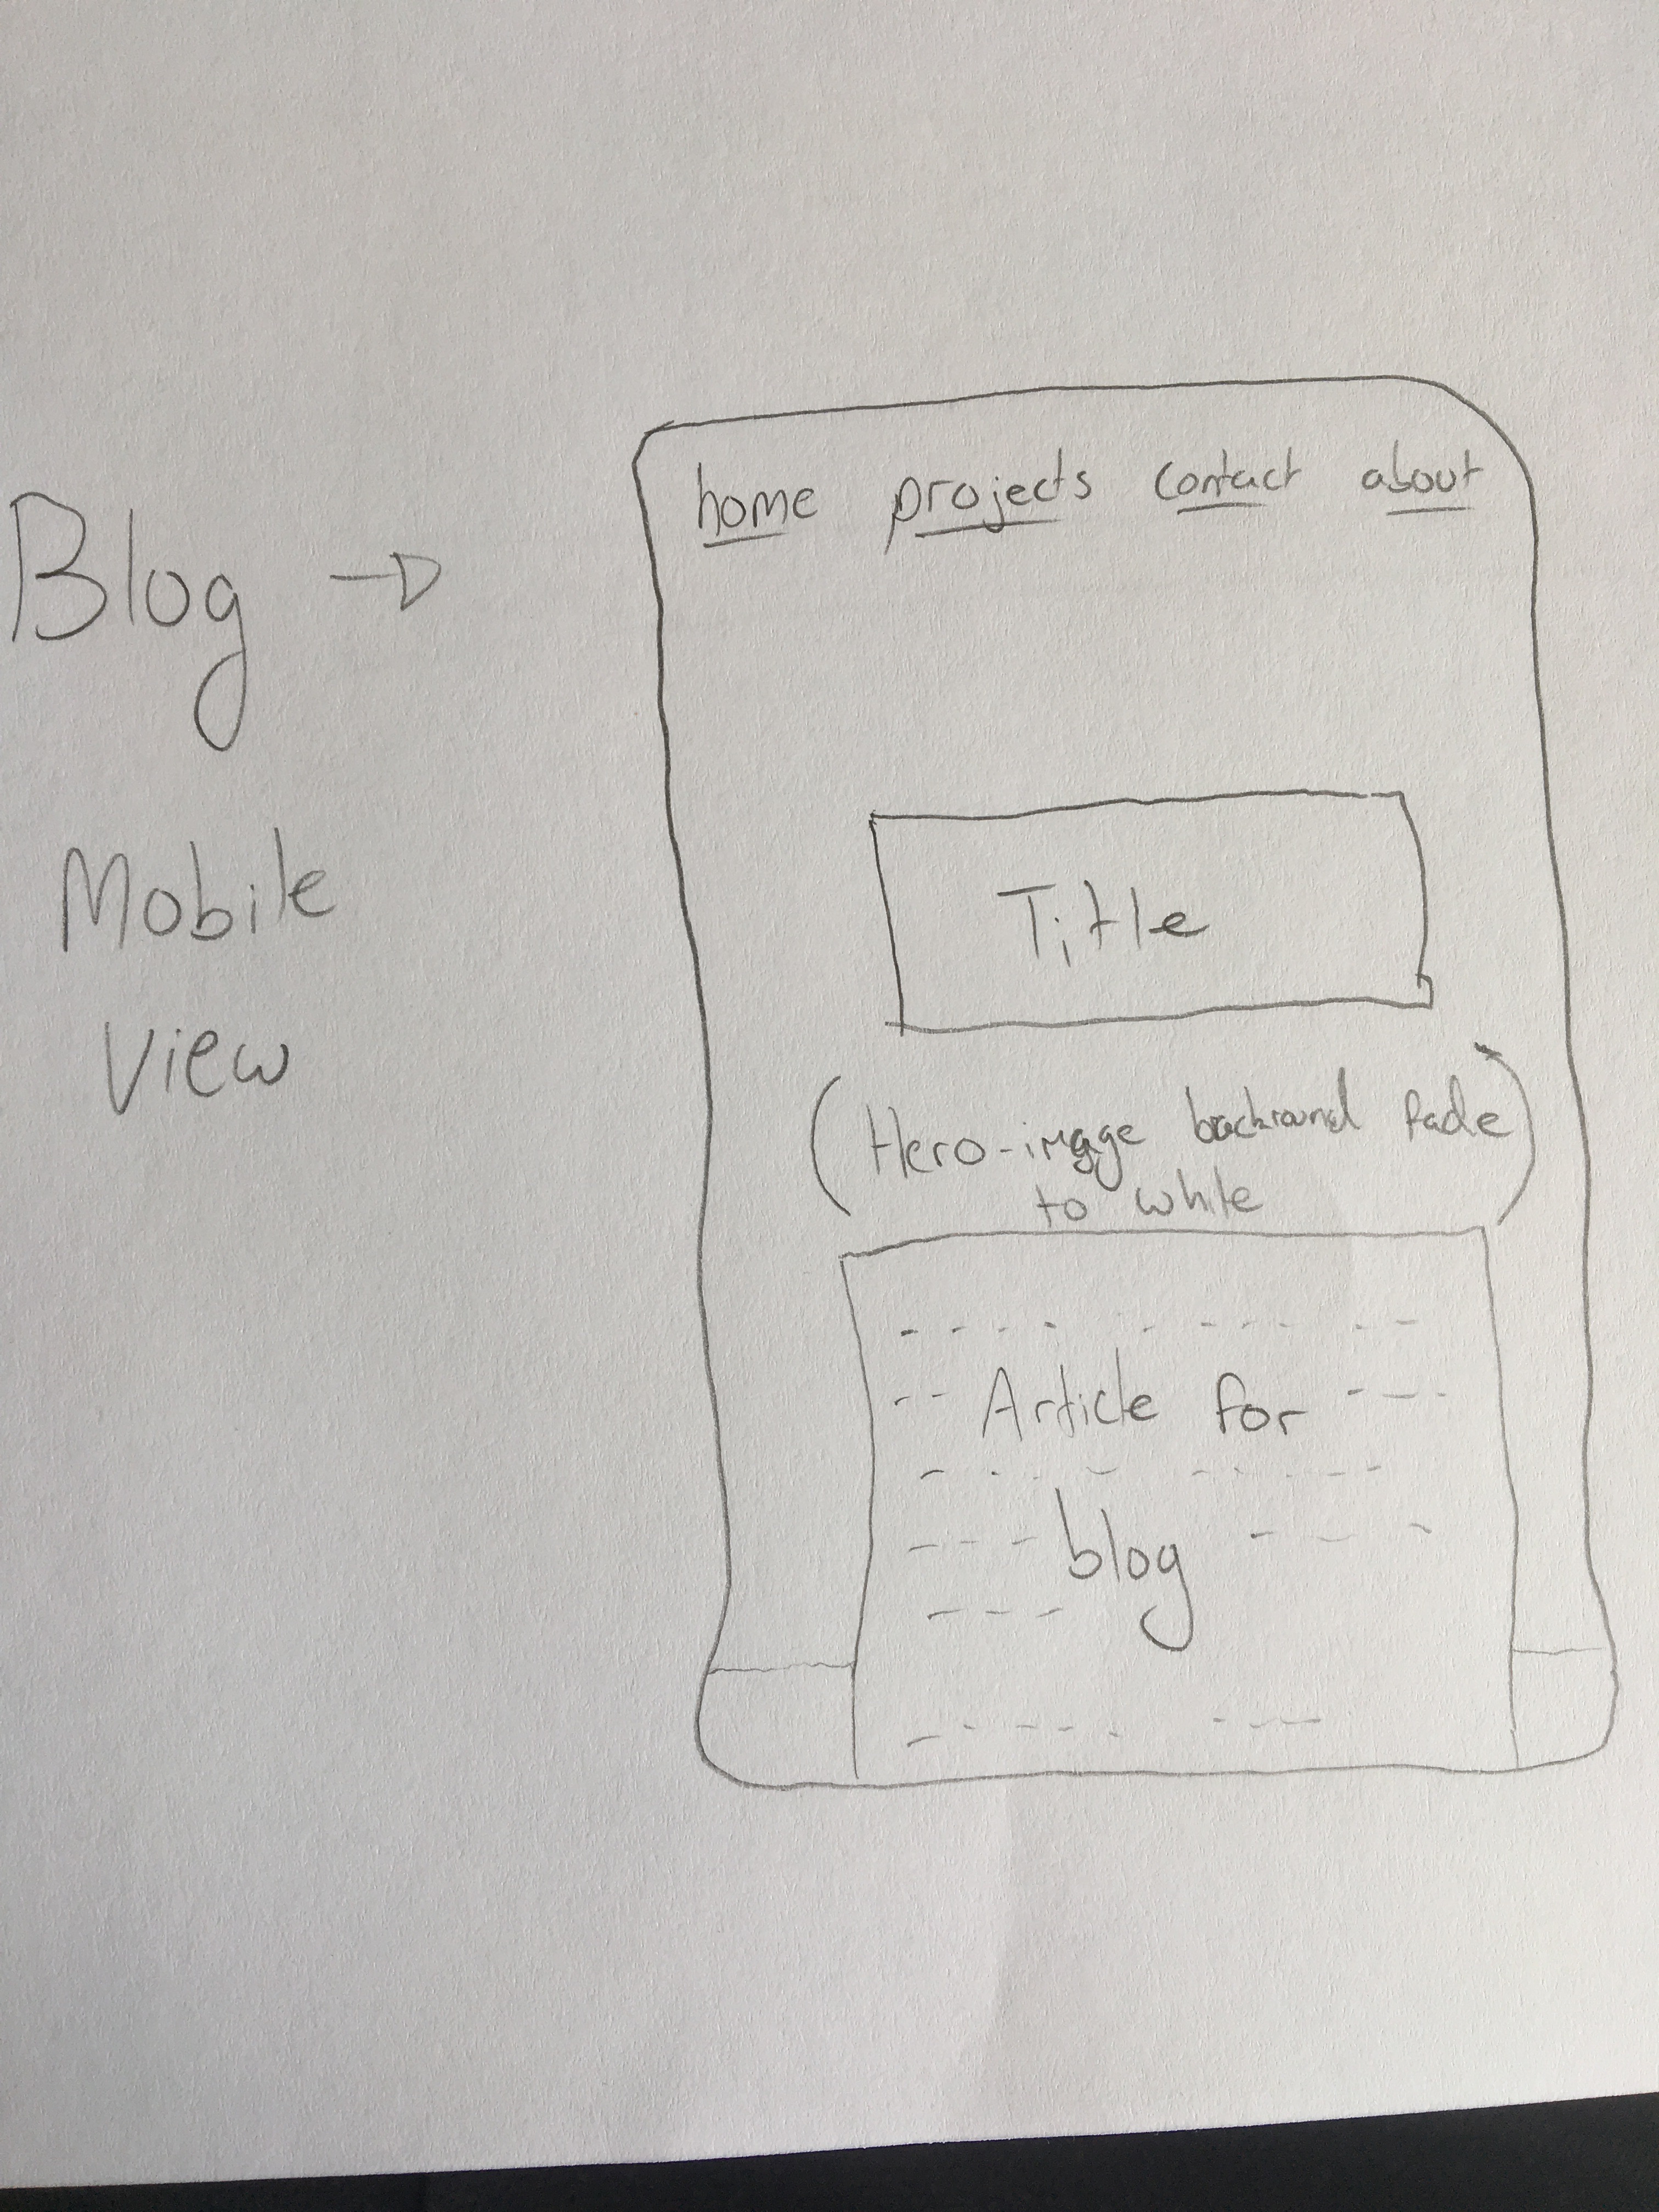 Blog →
Mobile
View
home projects contact about
Title
(Hero-image backround fade)
to white
Article for
blog